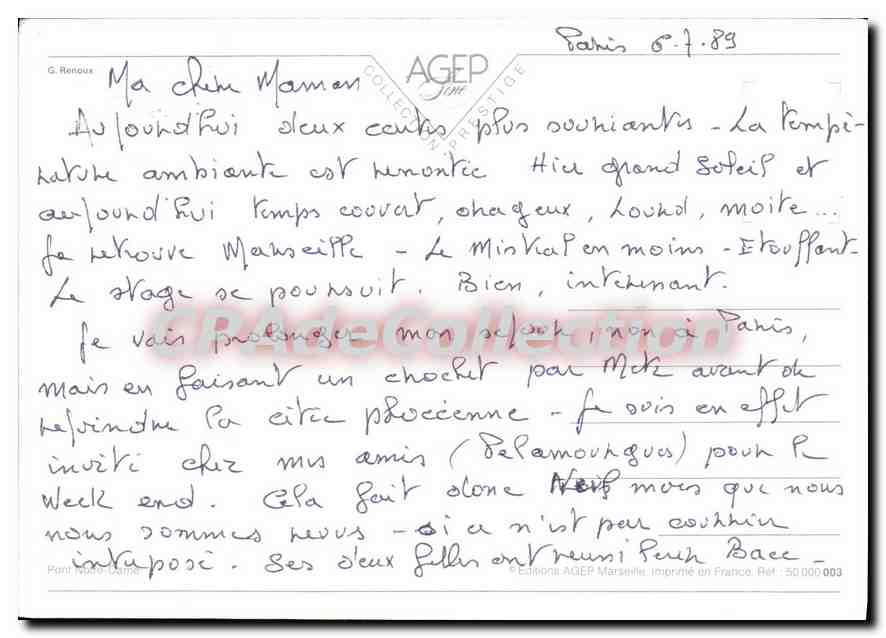 Paris 6.7.89
G. Renoux
AGEP
COLLECTION PRESTIGE
Ma chère Maman
Aujourd'hui deux cartes plus souriantes - La tempé-
rature ambiante est remontée Hier grand Soleil et
aujourd'hui temps couvert, orageux, lourd, moite...
Je retrouve Marseille - Le Mistral en moins - Etouffant.
Le stage se poursuit. Bien, intéressant.
Je vais prolonger mon séjour, non à Paris,
CPAdeCollection
mais en faisant un crochet par Metz avant de
rejoindre la citée phocéenne - Je suis en effet
invité chez mes amis (Pelamourgues) pour le
Week end. Cela fait donc mois que nous
nous sommes revus - si ce n'est par courrier
interposé. Ses deux filles ont réussi leur Bacc -
Pont Notre-Dame
© Editions AGEP Marseille, imprimé en France. Réf : 50 000 003